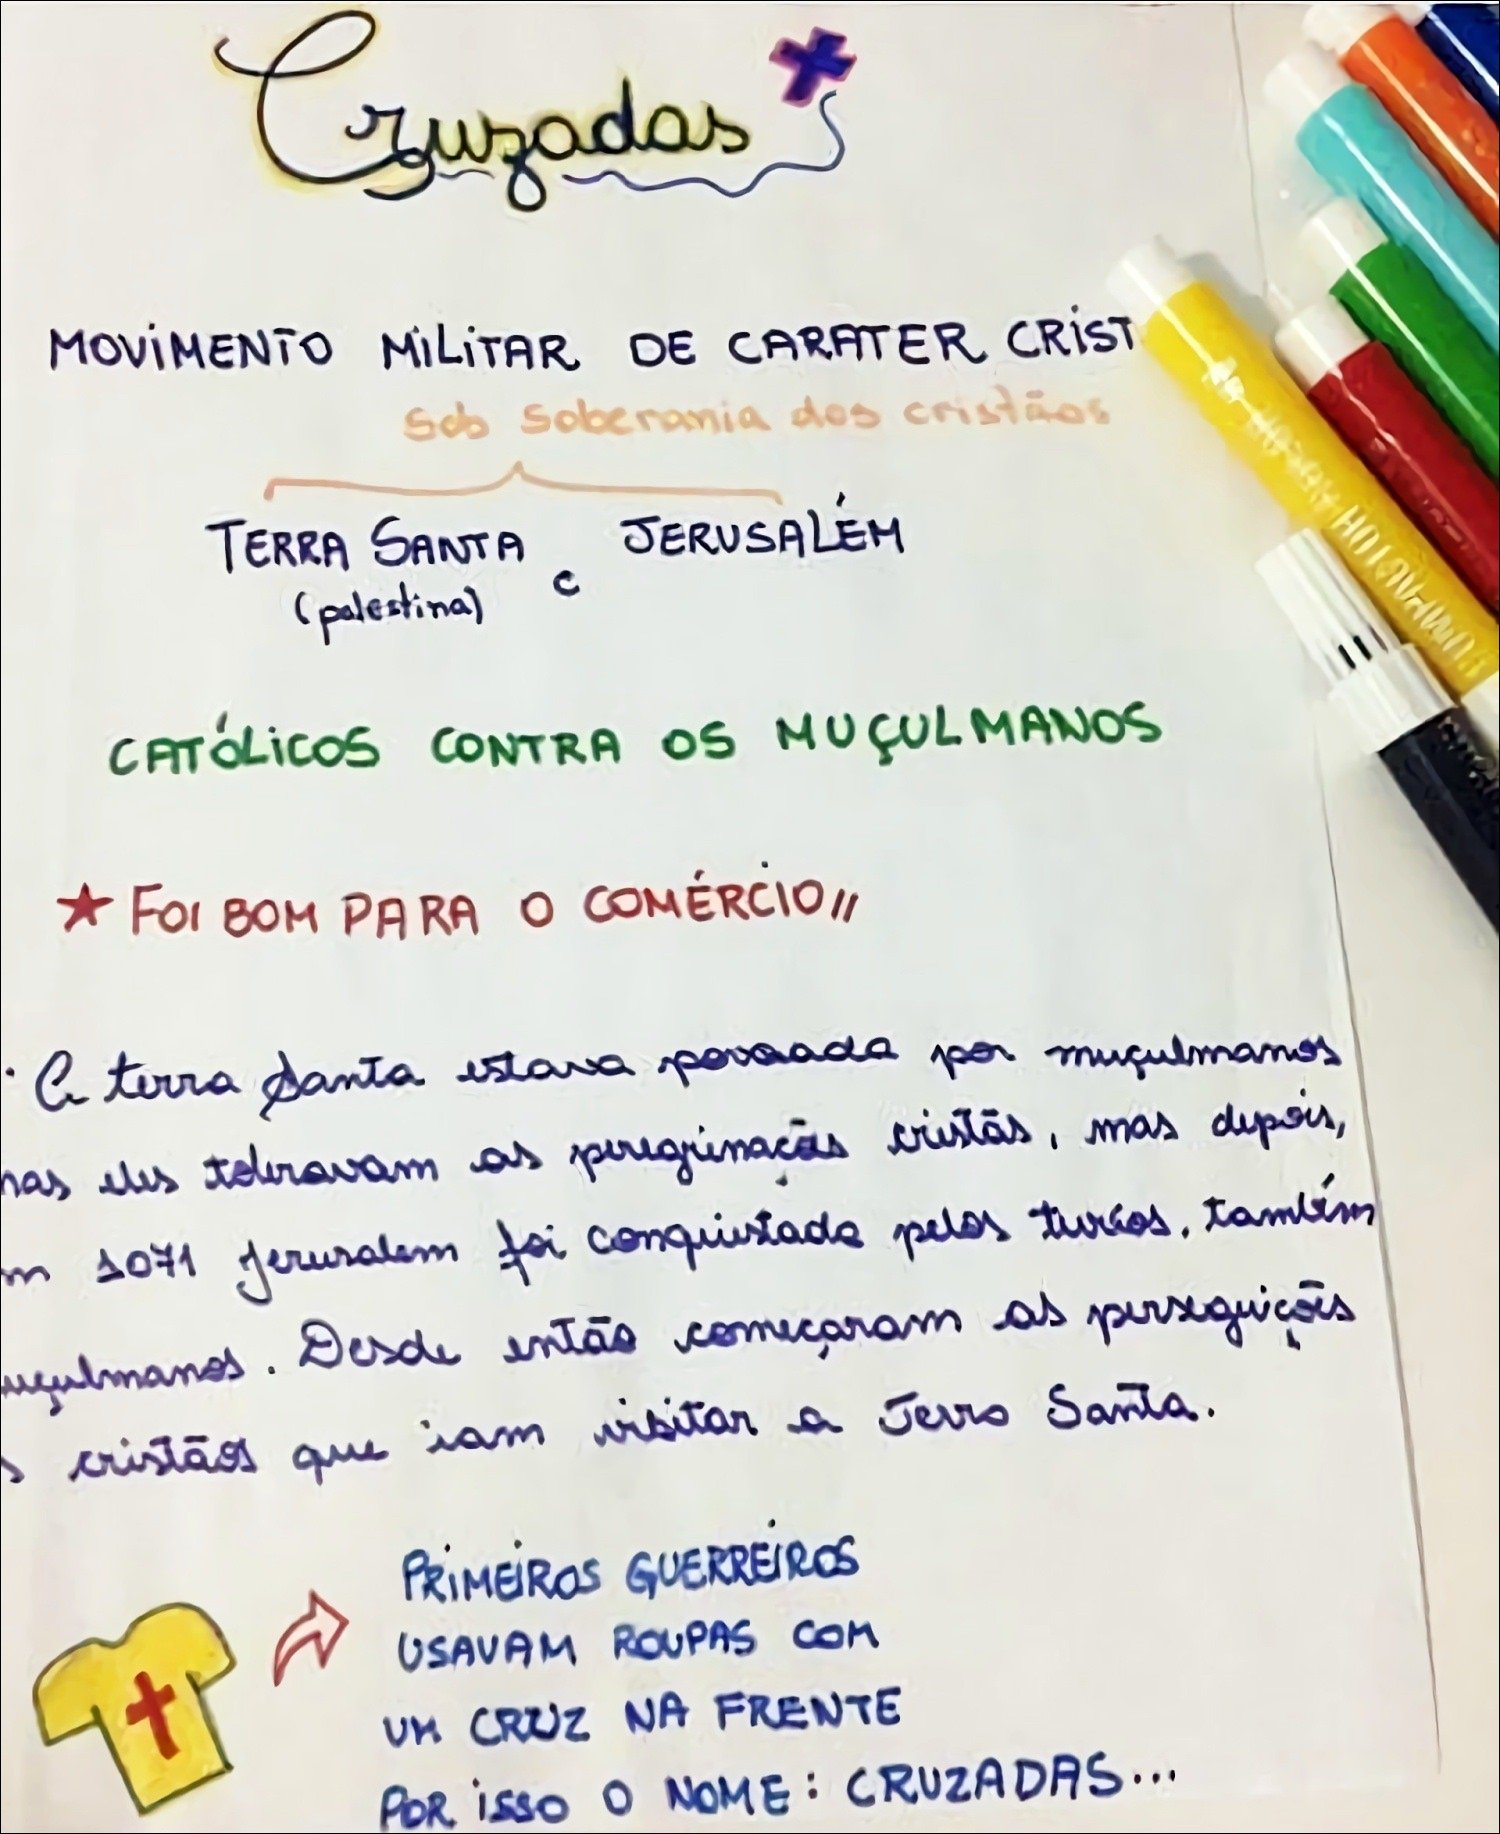 Cruzadas
MOVIMENTO MILITAR DE CARATER CRIST
sob soberania dos cristãos
TERRA SANTA e JERUSALÉM
(palestina)
CATÓLICOS CONTRA OS MUÇULMANOS
★ FOI BOM PARA O COMÉRCIO //
· A terra Santa estava povoada por muçulmanos
mas eles toleravam as peregrinações cristãs, mas depois,
m 1071 Jerusalem foi conquistada pelos turcos, também
uçulmanos. Desde então começaram as perseguições
s cristãos que iam visitar a Terra Santa.
PRIMEIROS GUERREIROS
USAVAM ROUPAS COM
UM CRUZ NA FRENTE
POR ISSO O NOME: CRUZADAS...